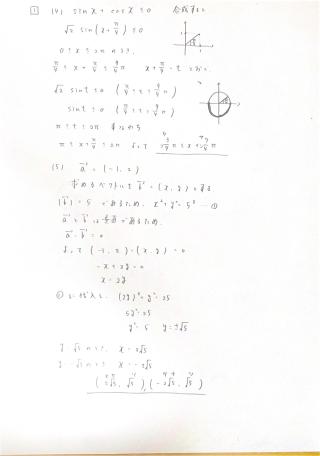 1 (4) sin x + cos x ≤ 0 合成すると
√2 sin(x + π/4) ≤ 0
0 ≤ x ≤ 2π より、
π/4 ≤ x + π/4 ≤ 9/4 π x + π/4 = t とおく
√2 sin t ≤ 0 (π/4 ≤ t ≤ 9/4 π)
sin t ≤ 0 (π/4 ≤ t ≤ 9/4 π)
π ≤ t ≤ 2π すなわち
π ≤ x + π/4 ≤ 2π よって 3/4 π ≤ x ≤ 7/4 π
(5) a = (-1, 2)
求めるベクトルを b = (x, y) とする
|b| = 5 であるため、x² + y² = 5² … ①
a と b は垂直であるため
a・b = 0
よって (-1, 2)・(x, y) = 0
-x + 2y = 0
x = 2y
① に代入し、(2y)² + y² = 25
5y² = 25
y² = 5 y = ±√5
y = √5 のとき x = 2√5
y = -√5 のとき x = -2√5
(2√5, √5), (-2√5, -√5)